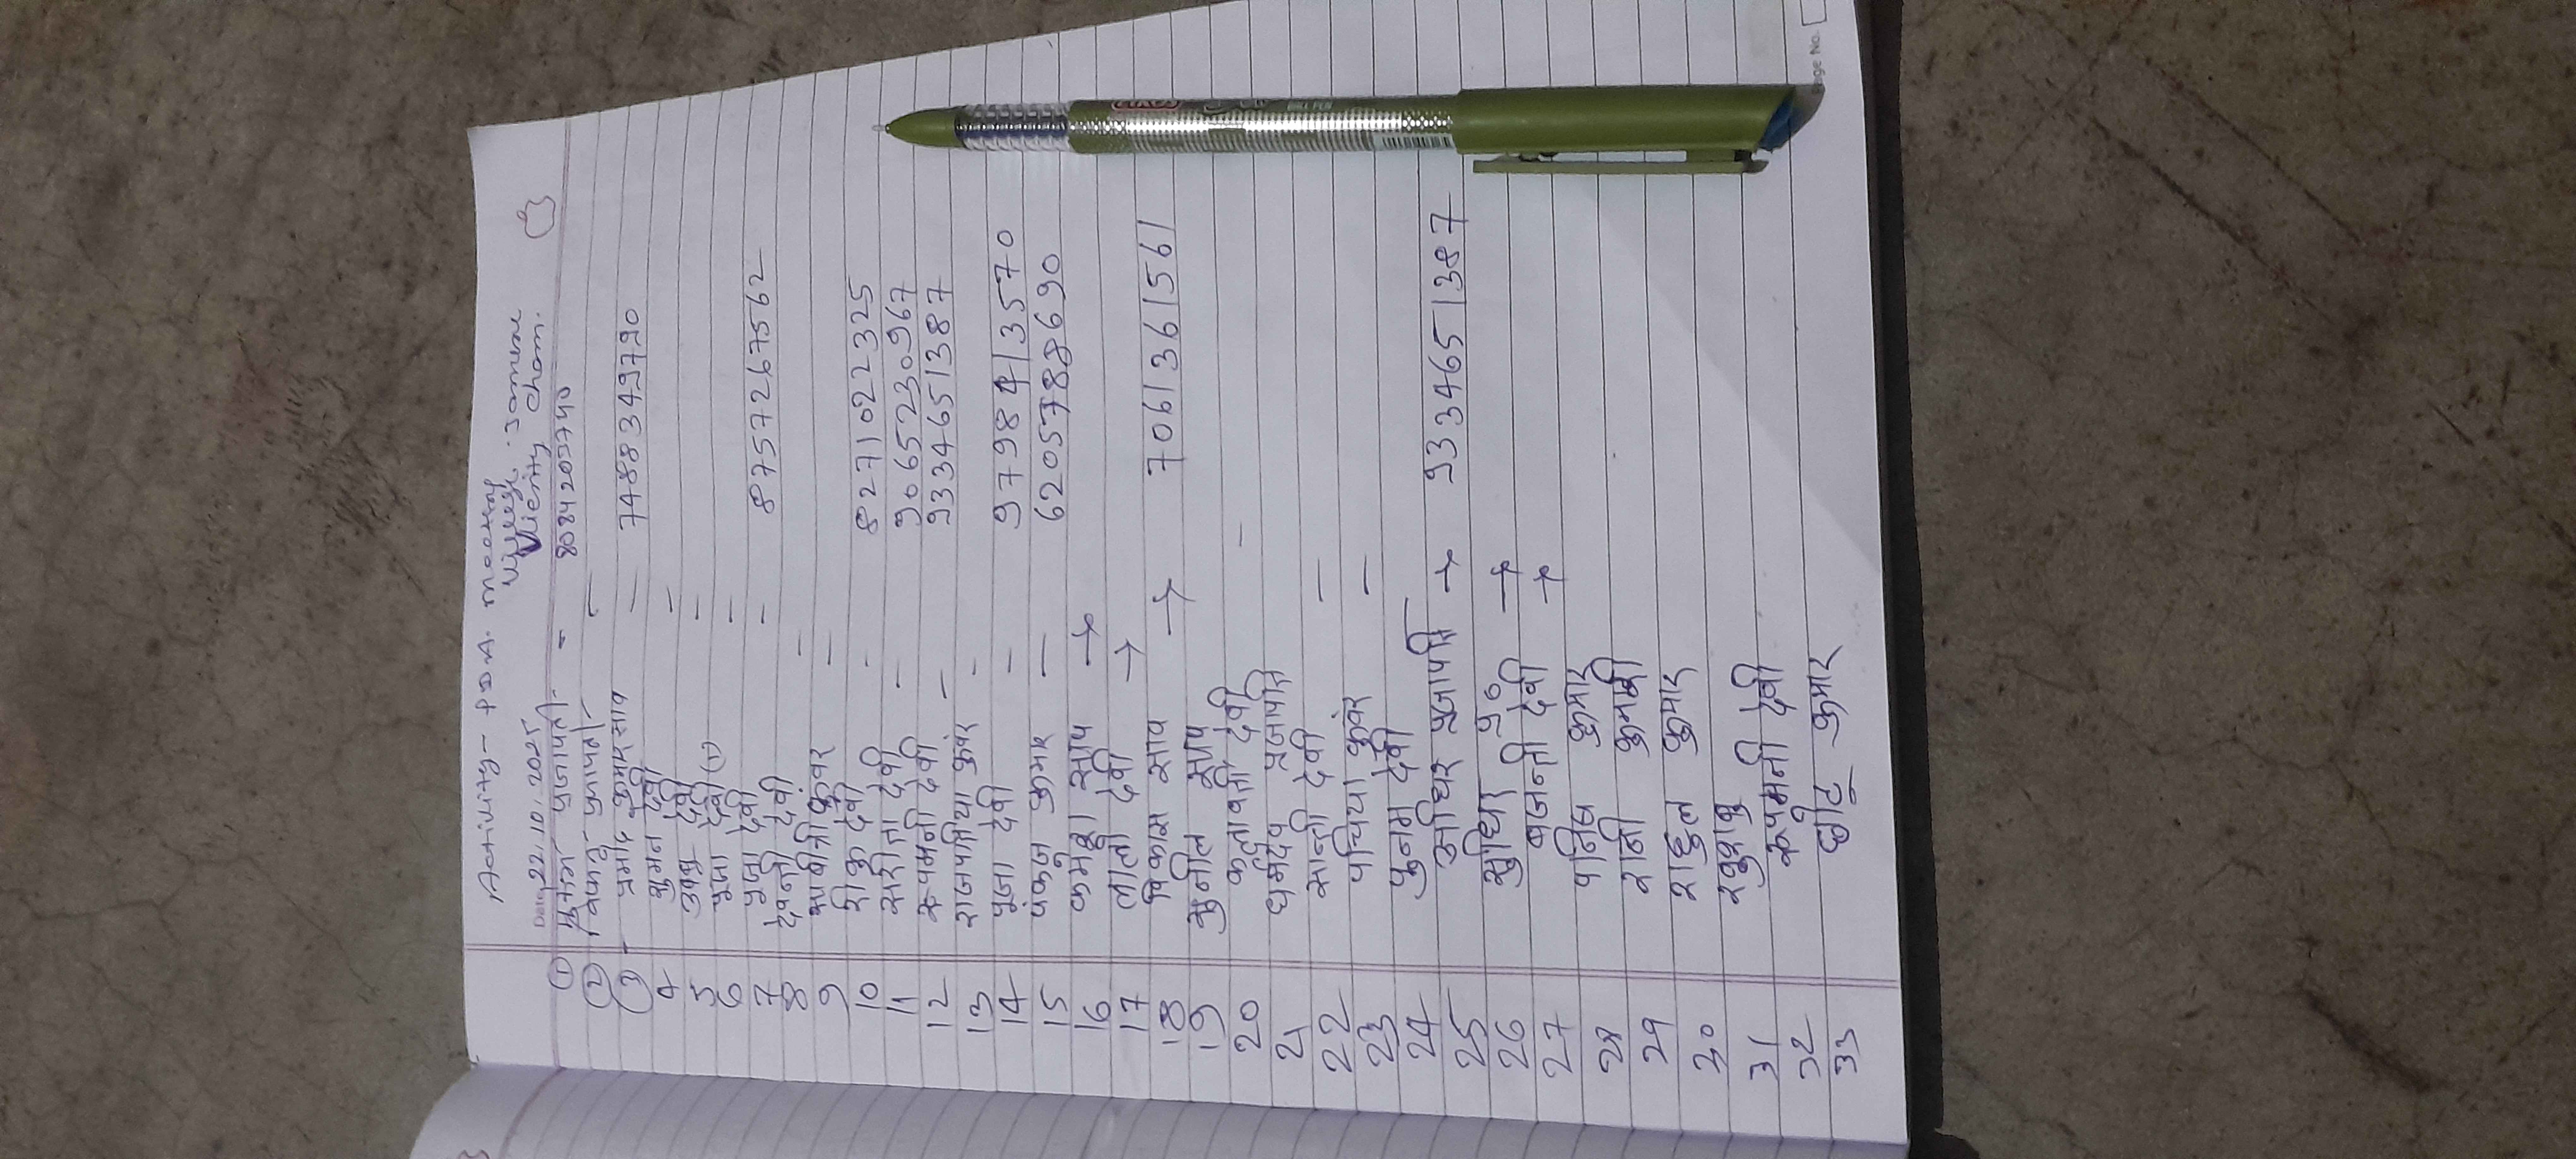 Activity - P.D.A. meeting
Date 22.10.2025
① प्रजापति - 8084203740
② प्रजापति -
③ प्रमोद कुमार साव - 7488349790
4 सुमन देवी -
5 देवी -
6 पुजा देवी (1) -
7 पुजा देवी - 8757267562
8 देवन्ती देवी -
9 सावित्री कुवंर -
10 रिंकु देवी - 8271022325
11 सरीता देवी - 9065230967
12 रूपमनी देवी - 9334651387
13 राजपतिया कुवंर -
14 पुंजा देवी - 9798413570
15 पंकज कुमार - 6205788690
16 साव →
17 लालो देवी →
18 विकास साव → 7061361561
19 सुनील साव
20 कलावती देवी -
21 धर्मदेव प्रजापति
22 सान्ती देवी -
23 पचिया कुवंर -
24 पुनम देवी
25 प्रजापति → 9334651387
26 सुधिर प्र० →
27 बजन्ती देवी →
28 कुमार
29 रानी कुमारी
30 राहुल कुमार
31 खुशबु
32 रूपमनी देवी
33 छोटु कुमार
Page No.